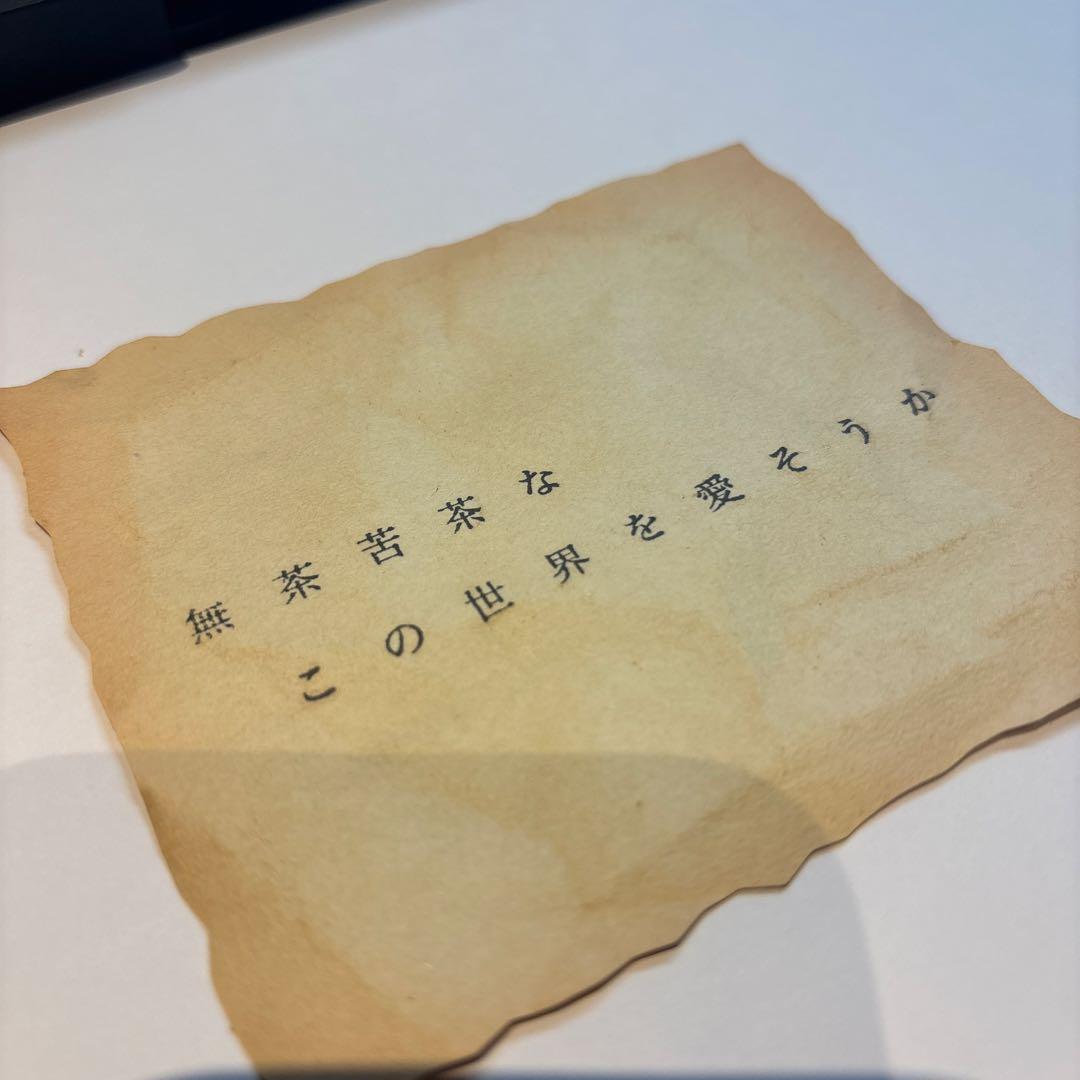 無茶苦茶な
この世界を愛そうか